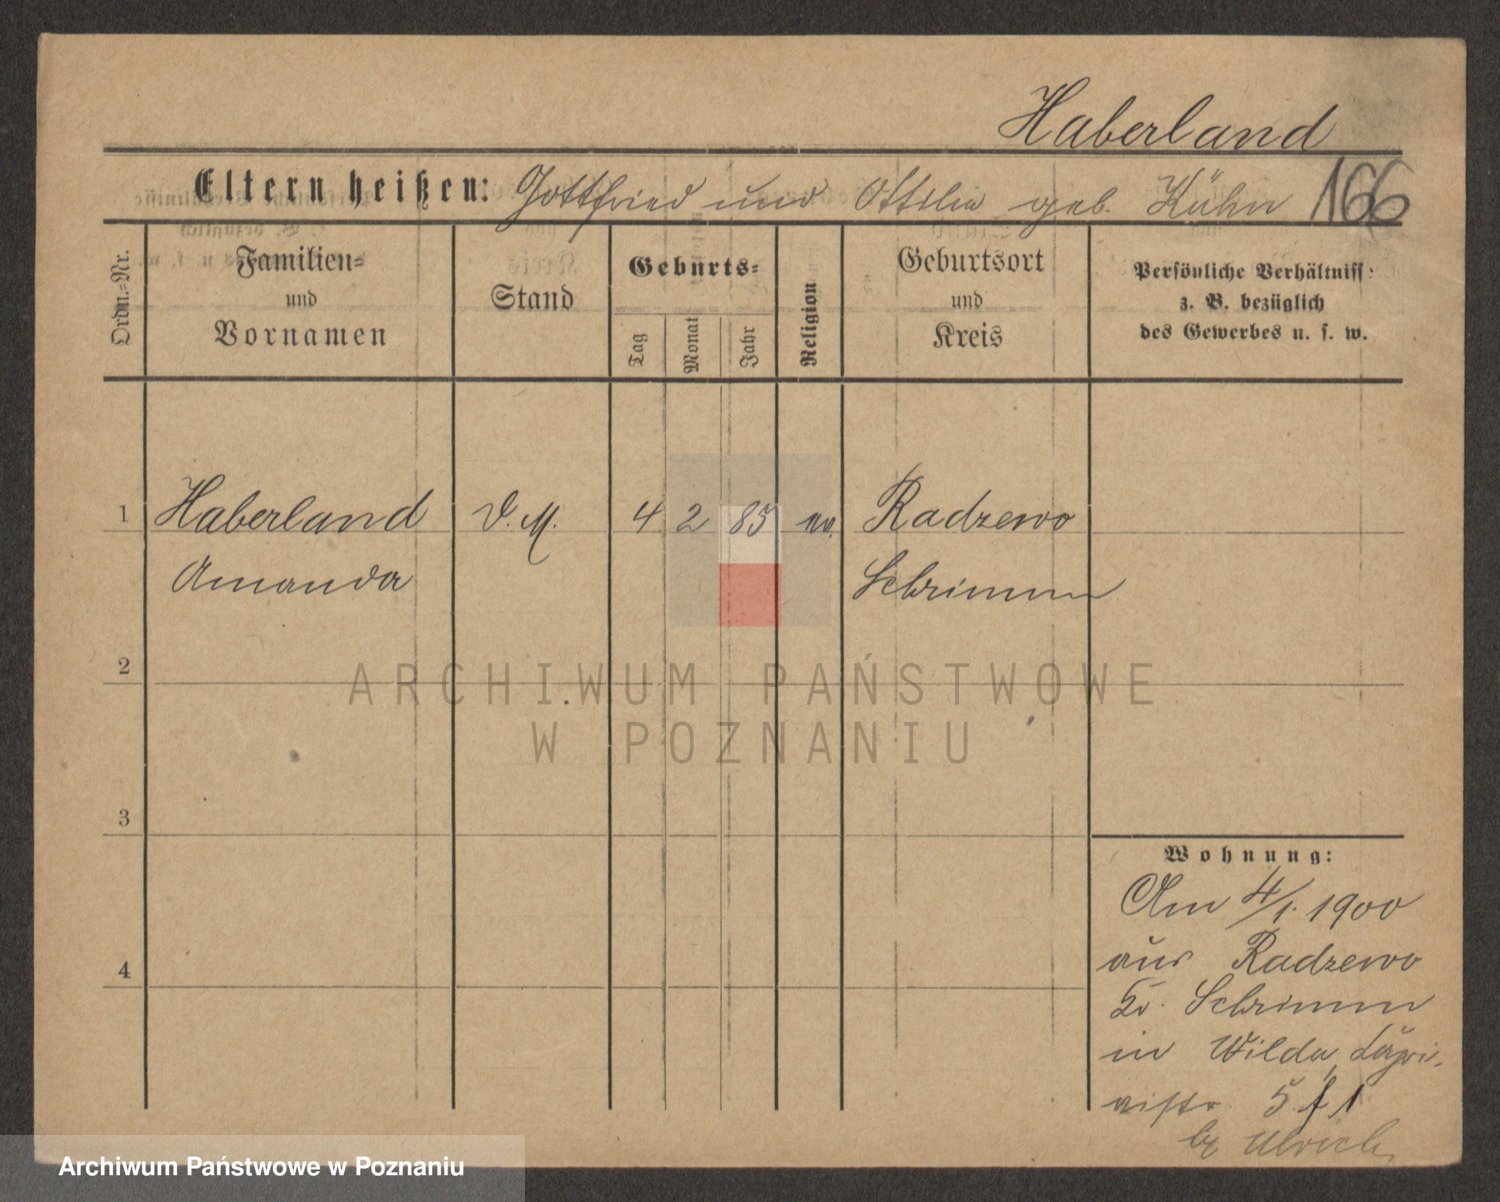 Haberland
Eltern heißen: Gottfried und Ottilie geb. Kühn 166
Ordn.-Nr.
Familien-
und
Vornamen
Stand
Geburts-
Tag
Monat
Jahr
Religion
Geburtsort
und
Kreis
Persönliche Verhältniss:
z. B. bezüglich
des Gewerbes u. s. w.
1 Haberland D. M. 4 2 85 ev. Radzewo
Amanda Schrimm
2
ARCHIWUM PAŃSTWOWE
W POZNANIU
3
Wohnung:
Am 4/1. 1900
aus Radzewo
Kr. Schrimm
4
in Wilda,
5
bei Ulrich
Archiwum Państwowe w Poznaniu